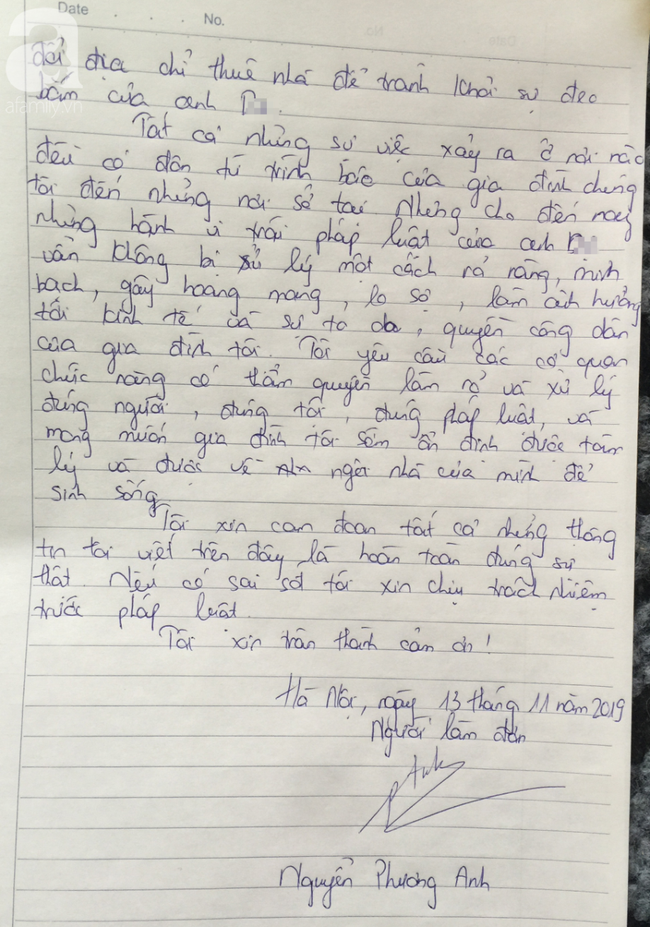 Date
No.
afamily.vn
đổi địa chỉ thuê nhà để tránh khỏi sự đeo
bám của anh
Tất cả những sự việc xảy ra ở nơi nào
đều có đơn từ trình báo của gia đình chúng
tôi đến những nơi sở tại. Nhưng cho đến nay
những hành vi trái pháp luật của anh
vẫn không bị xử lý một cách rõ ràng, minh
bạch, gây hoang mang, lo sợ, làm ảnh hưởng
tới kinh tế và sự tự do, quyền công dân
của gia đình tôi. Tôi yêu cầu các cơ quan
chức năng có thẩm quyền làm rõ và xử lý
đúng người, đúng tội, đúng pháp luật, và
mong muốn gia đình tôi sớm ổn định được tâm
lý và được về ngôi nhà của mình để
sinh sống.
Tôi xin cam đoan tất cả những thông
tin tôi viết trên đây là hoàn toàn đúng sự
thật. Nếu có sai sót tôi xin chịu trách nhiệm
trước pháp luật.
Tôi xin trân thành cảm ơn!
Hà Nội, ngày 13 tháng 11 năm 2019
Người làm đơn
Anh
Nguyễn Phương Anh